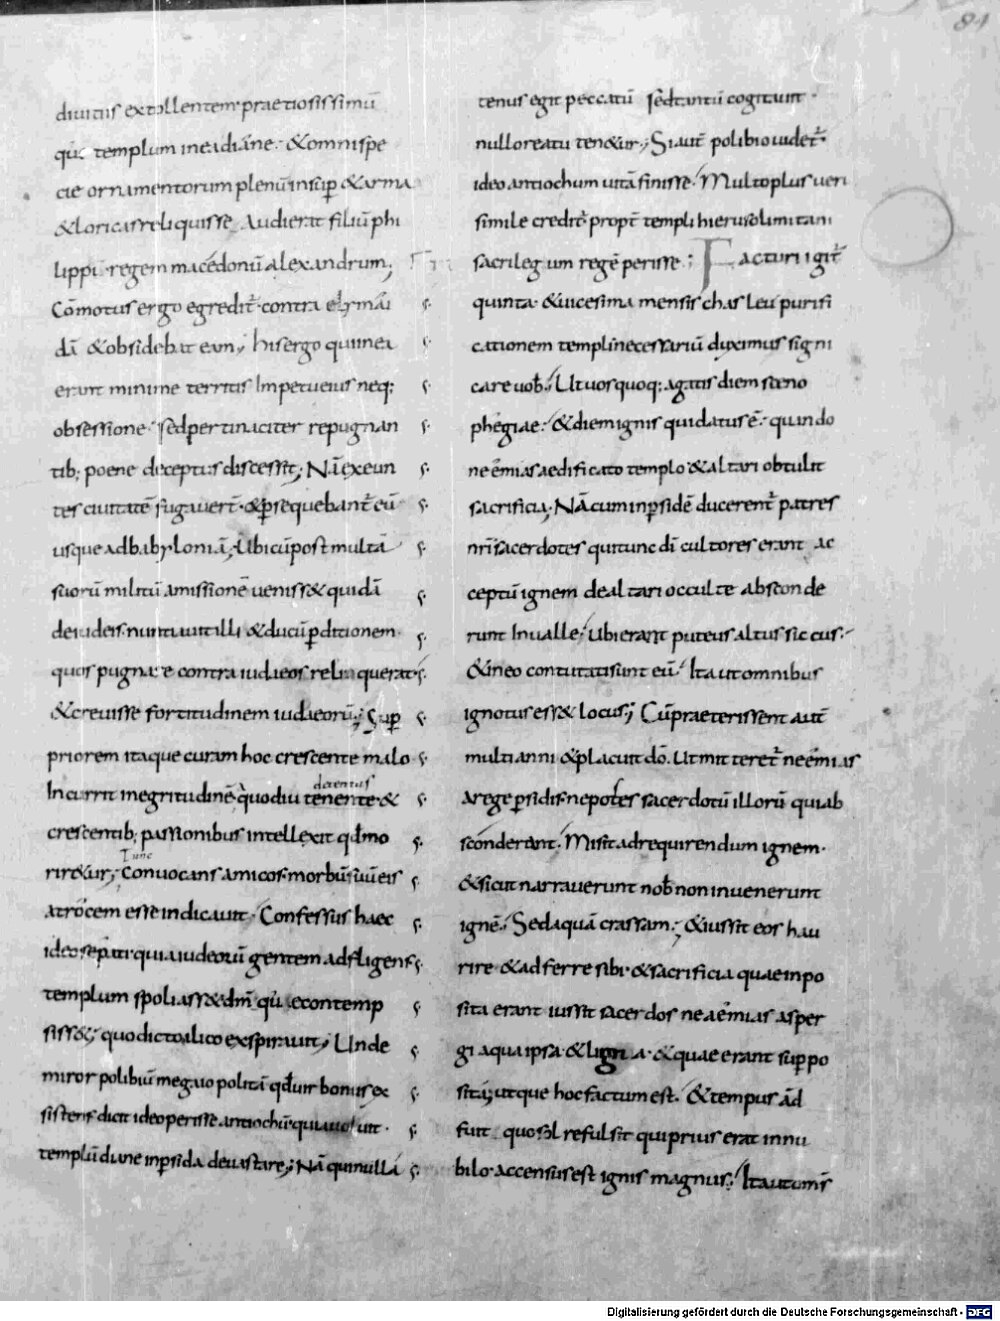 84
diuitiis extollentem praetiosissimū
que templum in ea diane · & omni spe
cie ornamentorum plenū insup & arma
& loricas reliquisse Audierat filiū phi
lippi regem macedoniū alexandrum;
Cōmotus ergo egredit contra elymai
dā & obsidebat eam; hi sergo qui inea
erant minime territis Impetu eius neq;
obsessione · sed pertinaciter repugnan
tib; poene deceptus discessit; Nā exeun
tes ciuitatē fugauert · & psequebant eū
usque ad babyloniā; Ubi cū post multā
suorū militū amissionē ueniss& quidā
de iudeis nuntiauit illi & ducū pditionem
quos pugnare contra iudaeos reliquerat
& creuisse fortitudinem iudaeorū; Sup
priorem itaque curam hoc crescente malo
docentus
Incurrit inegritudinē quo diu tenente &
crescentib; passionibus intellexit qd mo
Tunc
rir&ur; Conuocans amicos morbū suū eis
atrocem esse indicauit · Confessus haec
ideo se pati quia iudeorū gentem adfligens
templum spoliass& dm que contemp
siss&; quo dicto alico exspirauit; Unde
miror polibiū megalopolitā qd uir bonus ex
sistens dicit ideo perisse antiochū quia uoluit ·
templū diane in psida deuastare; Nā qui nullā
tenus egit peccatū sed tantū cogitauit ·
nullo reatu ten&ur; Si aut polibio uidet
ideo antiochum uitā finisse · Multo plus ueri
simile credit propt templi hierusolimitani
sacrilegium regē perisse; Facturi igit
quinta & uicesima mensis chasleu purifi
cationem templi necessariū duximus signi
care uob; Ut uos quoq; agatis diem sceno
phegiae · & diem ignis qui datus ē · quando
neemias aedificato templo & altari obtulit
sacrificia; Nā cum in psidē ducerent patres
nri sacerdotes qui tunc di cultores erant ac
ceptū ignem de altari occulte absconde
runt In ualle · Ubi erant puteus altus siccus ·
& in eo contutati sunt eū · Ita ut omnibus
ignotus ess& locus; Cū praeterissent aut
multi anni & placuit dō · Ut mitteret neemias
a rege psidis nepotes sacerdotū illorū qui ab
sconderant · Misit ad requirendum ignem ·
& sicut narrauerunt nob non inuenerunt
ignē · Sed aquā crassam; & iussit eos hau
rire & adferre sibi · & sacrificia quae inpo
sita erant iussit sacerdos neaemias asper
gi aqua ipsa · & ligna · & quae erant supppo
sita; utque hoc factum est · & tempus ad
fuit quo sol refulsit qui prius erat in nu
bilo · accensus est ignis magnus; Ita ut oms
Digitalisierung gefördert durch die Deutsche Forschungsgemeinschaft - DFG